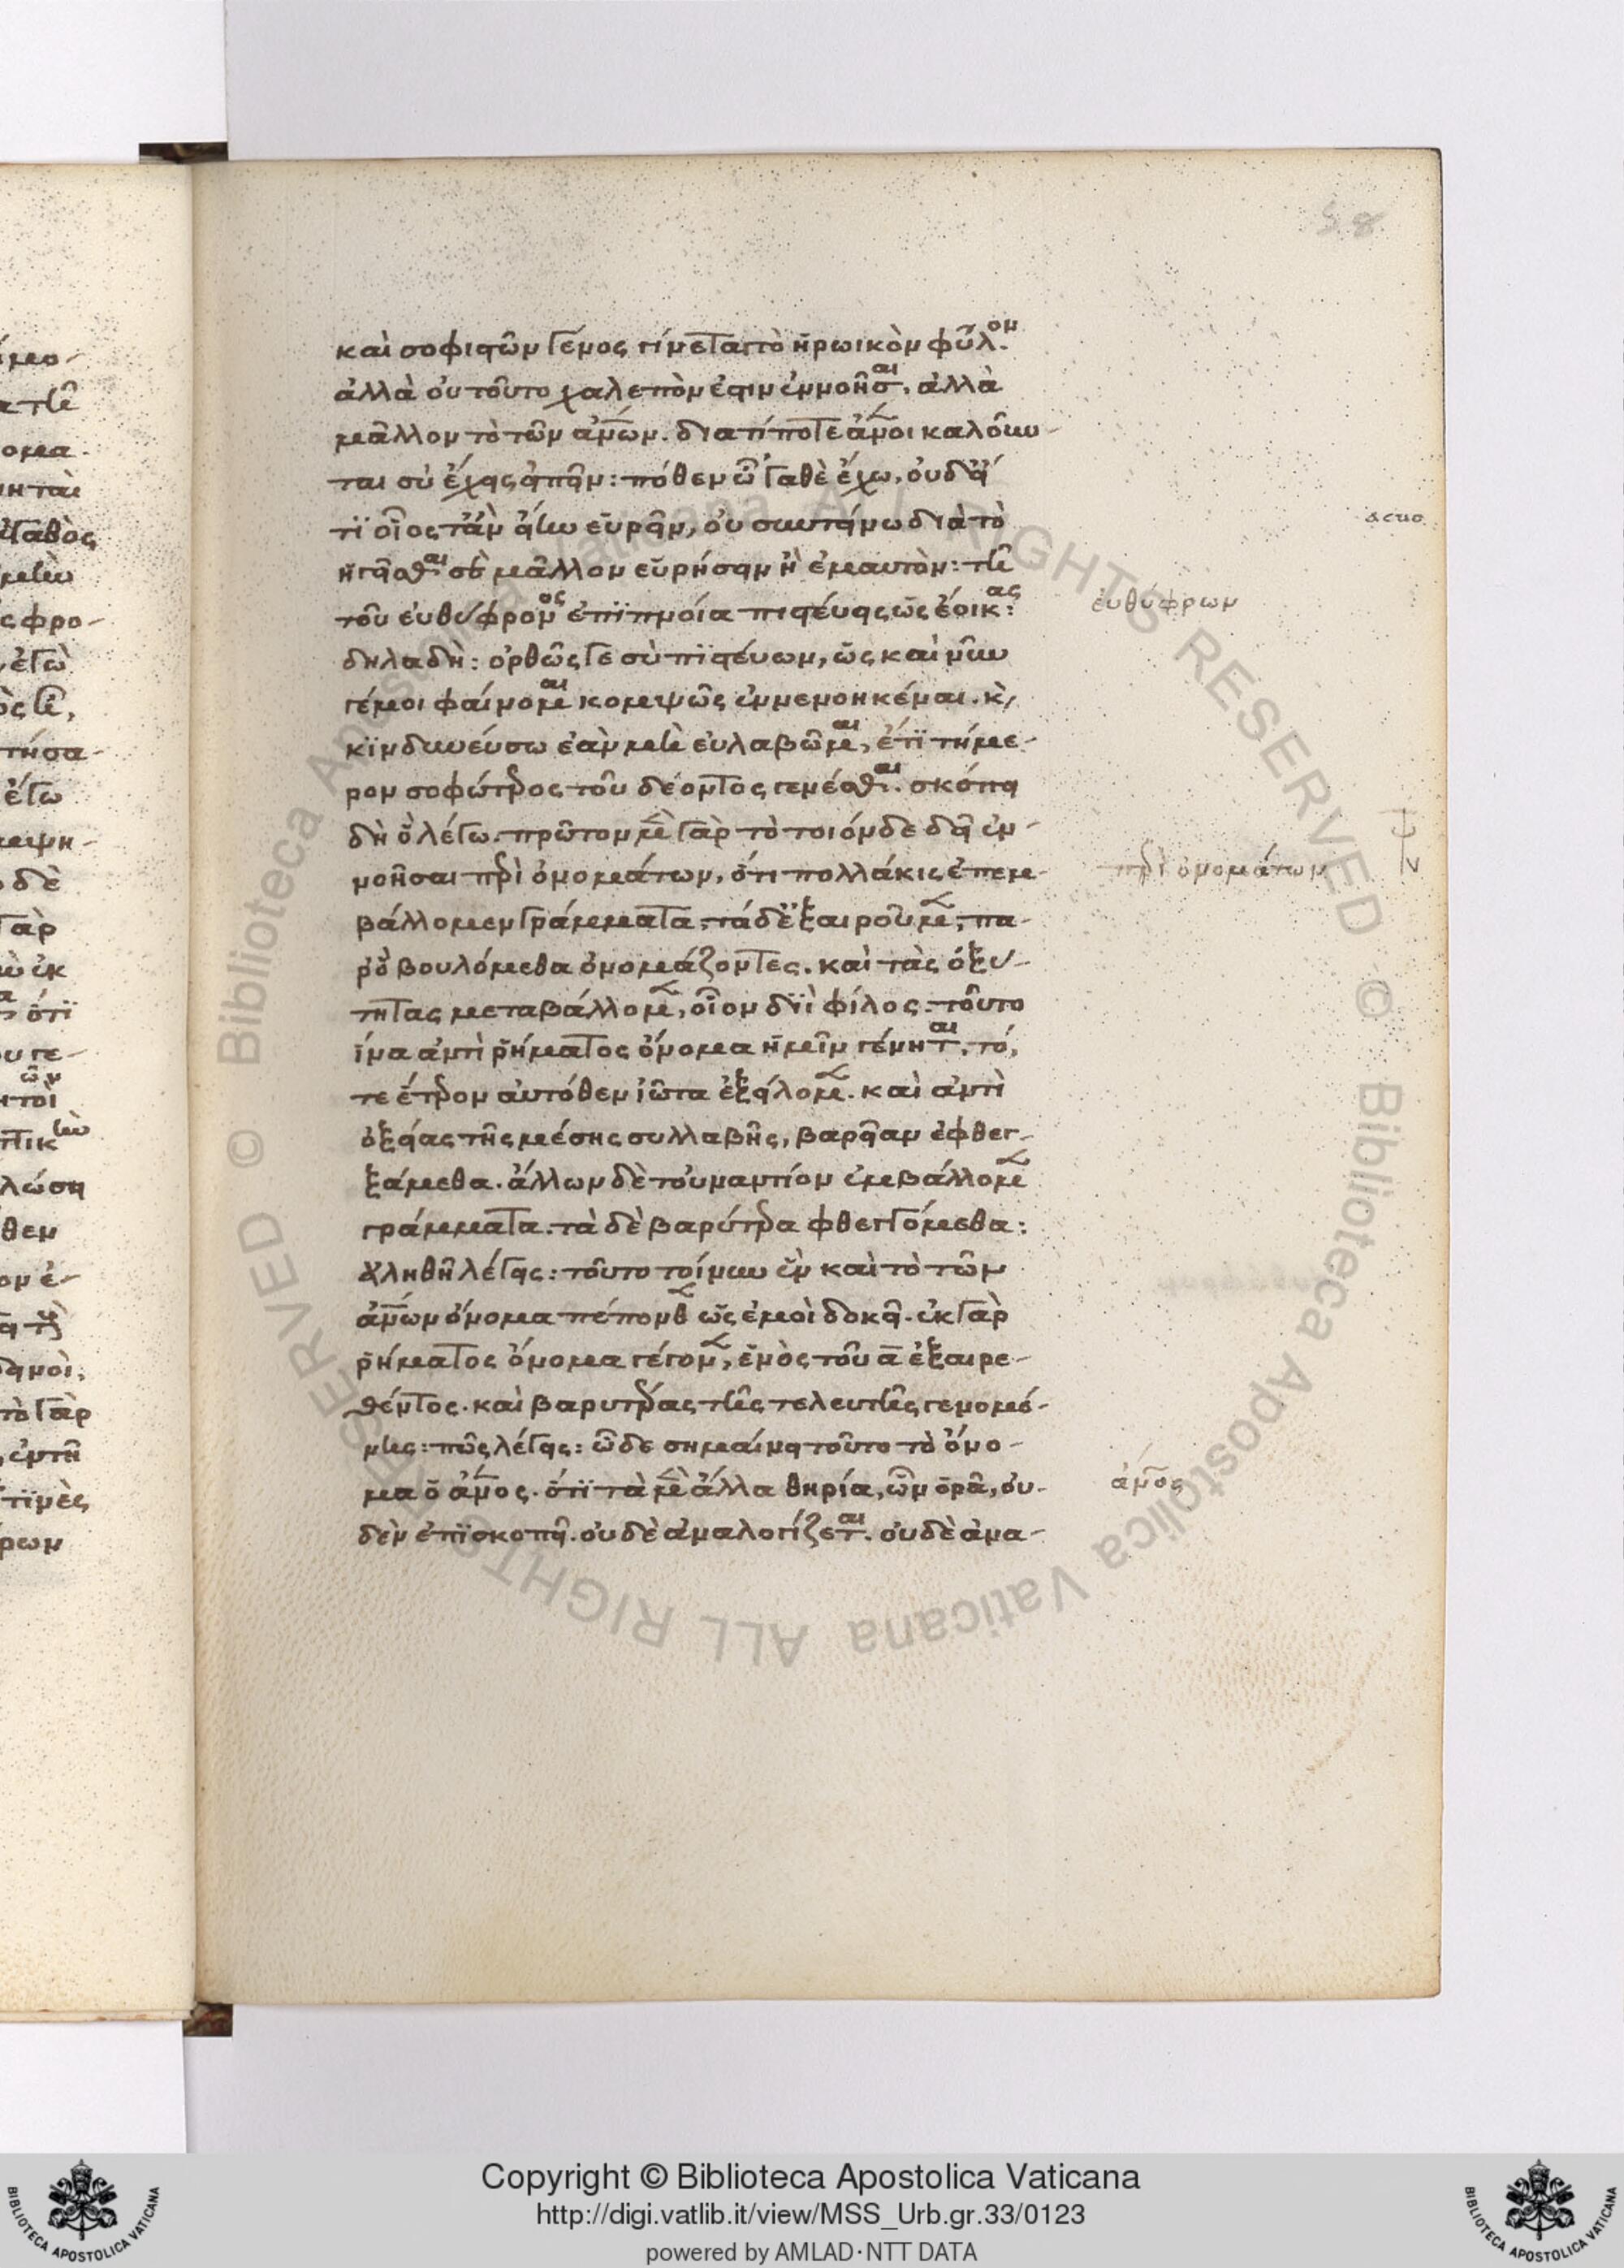 58
καὶ σοφιστῶν γένος γίνεται τὸ ἡρωικὸν φῦλον.
ἀλλὰ οὐ τοῦτο χαλεπόν ἐστιν ἐννοῆσαι. ἀλλὰ
μᾶλλον τὸ τῶν ἀνῶν. διατί ποτε ἄνοι καλοῦν-
ται σὺ ἔχεις εἰπεῖν: πόθεν ὦ 'γαθὲ ἔχω, οὐδ' εἴ
τι οἷος τ' ἂν εἴην εὑρεῖν, οὐ συντείνω διὰ τὸ
ἡγεῖσθαι σὲ μᾶλλον εὑρήσειν ἢ ἐμαυτὸν: τῆ
τοῦ εὐθύφρονος ἐπιπνοία πιστεύεις ὡς ἔοικας:
δηλαδὴ: ὀρθῶς γε σὺ πιστεύων, ὡς καὶ νῦν
γέ μοι φαίνομαι κομψῶς ἐννενοηκέναι. κ̀
κινδυνεύσω ἐὰν μὴ εὐλαβῶμαι, ἔτι τήμε-
ρον σοφώτερος τοῦ δέοντος γενέσθαι. σκόπει
δὴ ὃ λέγω. πρῶτον μὲ γὰρ τὸ τοιόνδε δεῖ ἐν-
νοῆσαι περὶ ὀνομάτων, ὅτι πολλάκις ἐπεμ-
βάλλομεν γράμματα, τὰ δ' ἐξαιροῦμε, πα-
ρ' ὃ βουλόμεθα ὀνομάζοντες. καὶ τὰς ὀξύ-
τητας μεταβάλλομε, οἷον διῒ φίλος. τοῦτο
ἵνα ἀντὶ ῥήματος ὄνομα ἡμῖν γένηται, τό,
τε ἕτερον αὐτόθεν ἰῶτα ἐξείλομε. καὶ ἀντὶ
ὀξείας τῆς μέσης συλλαβῆς, βαρεῖαν ἐφθεγ-
ξάμεθα. ἄλλων δὲ τοὐναντίον ἐμβάλλομε
γράμματα. τὰ δὲ βαρύτερα φθεγγόμεθα:
ἀληθῆ λέγεις: τοῦτο τοίνυν ἓν καὶ τὸ τῶν
ἀνῶν ὄνομα πέπονθ ὡς ἐμοὶ δοκεῖ. ἐκ γὰρ
ῥήματος ὄνομα γέγον, ἑνὸς τοῦ α ἐξαιρε-
θέντος. καὶ βαρυτέρας τῆς τελευτῆς γενομέ-
νης: πῶς λέγεις: ὧδε σημαίνει τοῦτο τὸ ὄνο-
μα ὁ ἄνος. ὅτι τὰ μὲ ἄλλα θηρία, ὧν ὁρᾶ, οὐ-
δὲν ἐπισκοπεῖ. οὐδὲ ἀναλογίζεται. οὐδὲ ἀνα-
εὐθύφρων
περὶ ὀνομάτων
ἄνος
Copyright © Biblioteca Apostolica Vaticana
http://digi.vatlib.it/view/MSS_Urb.gr.33/0123
powered by AMLAD·NTT DATA